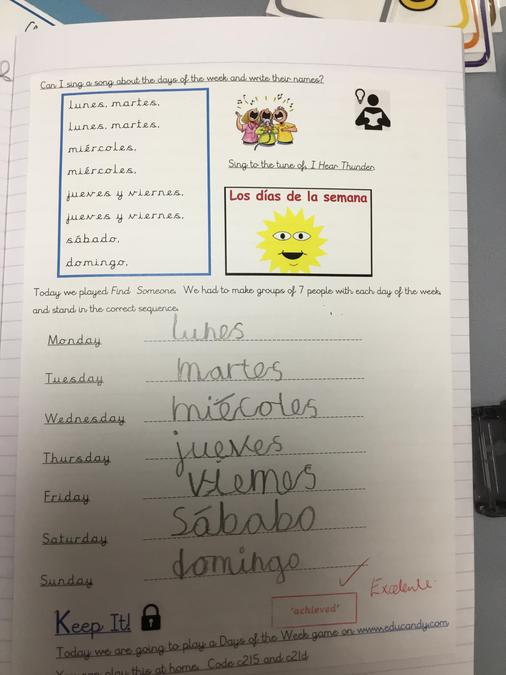 Can I sing a song about the days of the week and write their names?
lunes, martes,
lunes, martes,
miércoles,
miércoles,
jueves y viernes,
jueves y viernes,
sábado,
domingo,
Sing to the tune of, I Hear Thunder
Los días de la semana
Today we played Find Someone. We had to make groups of 7 people with each day of the week
and stand in the correct sequence.
Monday lunes
Tuesday martes
Wednesday miécoles
Thursday jueves
Friday viernes
Saturday Sábabo
Sunday domingo
Excelente
'achieved'
Keep It!
Today we are going to play a Days of the Week game on www.educandy.com
You can play this at home. Code c215 and c21d